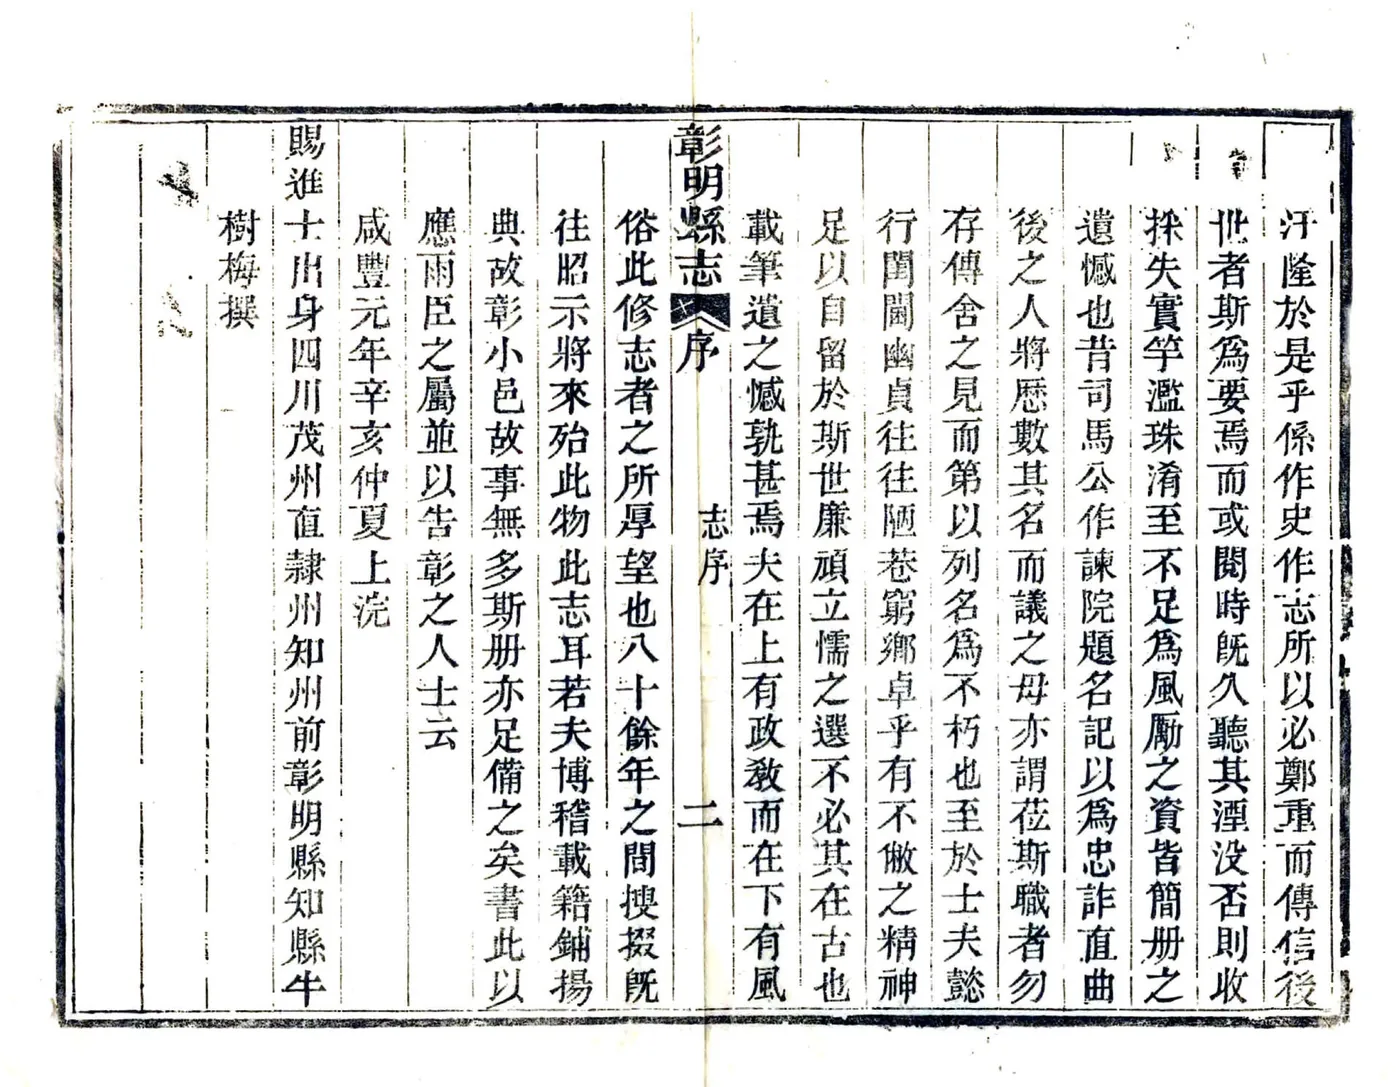 汙隆於是乎係作史作志所以必鄭重而傳信後
世者斯爲要焉而或閱時旣久聽其湮没否則收
採失實竽濫珠淆至不足爲風勵之資皆簡册之
遺憾也昔司馬公作諫院題名記以爲忠詐直曲
後之人將歷數其名而議之毋亦謂莅斯職者勿
存傳舍之見而第以列名爲不朽也至於士夫懿
行閨閫幽貞往往陋巷窮鄉卓乎有不敝之精神
足以自留於斯世廉頑立懦之選不必其在古也
載筆遺之憾孰甚焉夫在上有政敎而在下有風
彰明縣志 序 志序 二
俗此修志者之所厚望也八十餘年之間搜掇旣
往昭示將來殆此物此志耳若夫博稽載籍鋪揚
典故彰小邑故事無多斯册亦足備之矣書此以
應雨臣之屬並以告彰之人士云
咸豐元年辛亥仲夏上浣
賜進士出身四川茂州直隸州知州前彰明縣知縣牛
樹梅撰